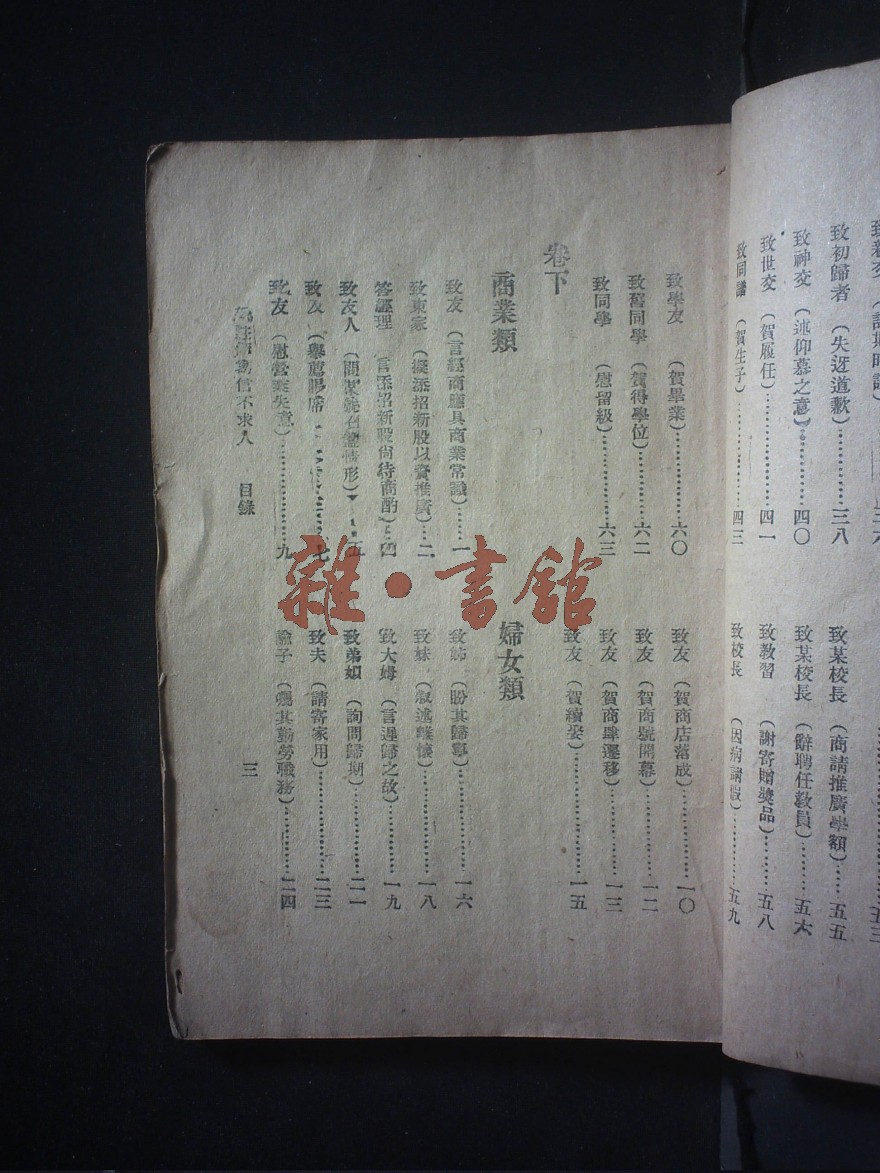 致初歸者（失迓道歉）…………三八
致神交（述仰慕之意）…………四〇
致世交（賀履任）…………四一
致同譜（賀生子）…………四三
致某校長（商請推廣學額）……五五
致某校長（辭聘任教員）………五六
致教習（謝寄贈獎品）………五八
致校長（因病請假）…………五九
致學友（賀畢業）…………六〇
致舊同學（賀得學位）…………六二
致同學（慰留級）…………六三
卷下
商業類
致友（言經商應具商業常識）……一
致東家（擬添招新股以資推廣）……二
答經理（言添招新股尚待商酌）…四
致友人
致友（舉薦賜席）…………七
致友（慰營業失意）…………九
致友（賀商店落成）…………一〇
致友（賀商號開幕）…………一二
致友（賀商肆遷移）…………一三
致友（賀續娶）…………一五
婦女類
致姊（盼其歸寧）…………一六
致妹（叙述離懷）…………一八
致大姆（言遲歸之故）…………一九
致弟婦（詢問歸期）…………二一
致夫（請寄家用）…………二三
諭子（囑其勤勞職務）…………二四
寫信不求人 目錄
三
雜·書館